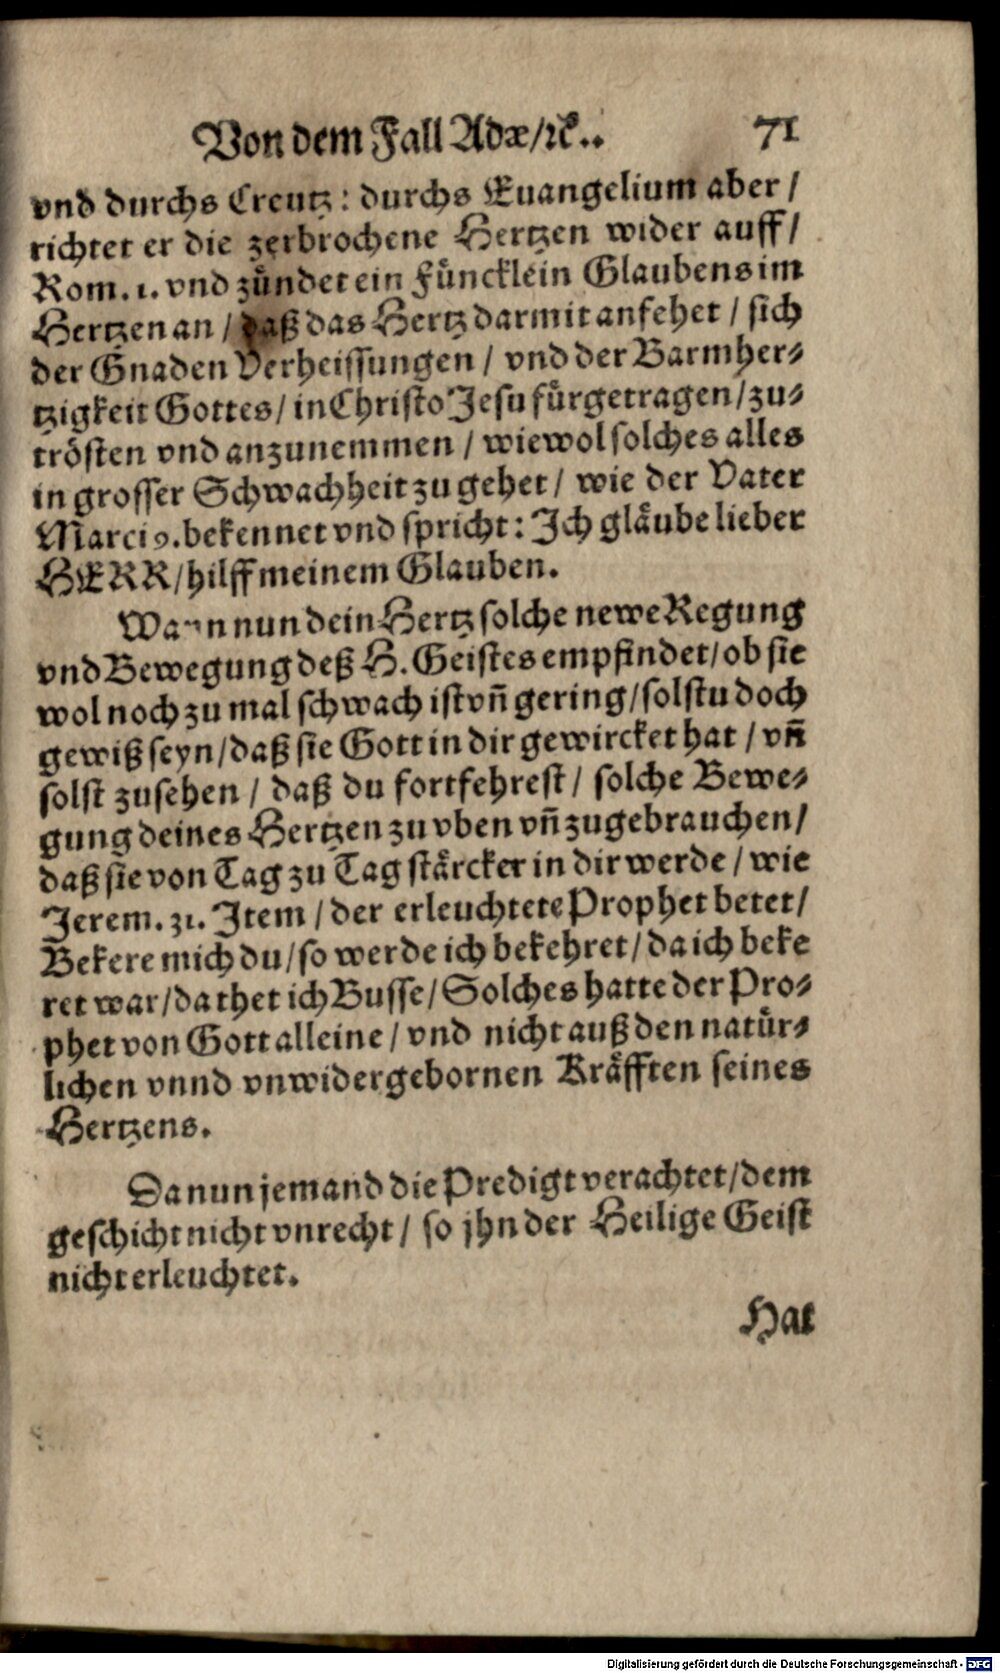 Von dem Fall Adæ/ꝛc.. 71
vnd durchs Creutz: durchs Euangelium aber/
richtet er die zerbrochene Hertzen wider auff/
Rom. 1. vnd zündet ein Füncklein Glaubens im
Hertzen an/ daß das Hertz darmit anfehet/ sich
der Gnaden Verheissungen/ vnd der Barmher-
tzigkeit Gottes/ in Christo Jesu fürgetragen/ zu-
trösten vnd anzunemmen/ wiewol solches alles
in grosser Schwachheit zu gehet/ wie der Vater
Marci 9. bekennet vnd spricht: Ich gläube lieber
HERR/ hilff meinem Glauben.
Wann nun dein Hertz solche newe Regung
vnd Bewegung deß H. Geistes empfindet/ ob sie
wol noch zu mal schwach ist vñ gering/ solstu doch
gewiß seyn/ daß sie Gott in dir gewircket hat/ vñ
solst zusehen/ daß du fortfehrest/ solche Bewe-
gung deines Hertzen zu vben vñ zugebrauchen/
daß sie von Tag zu Tag stärcker in dir werde/ wie
Jerem. 31. Item/ der erleuchtete Prophet betet/
Bekere mich du/ so werde ich bekehret/ da ich beke
ret war/ da thet ich Busse/ Solches hatte der Pro-
phet von Gott alleine/ vnd nicht auß den natür-
lichen vnnd vnwidergebornen Kräfften seines
Hertzens.
Da nun jemand die Predigt verachtet/ dem
geschicht nicht vnrecht/ so jhn der Heilige Geist
nicht erleuchtet.
Hat
Digitalisierung gefördert durch die Deutsche Forschungsgemeinschaft - DFG